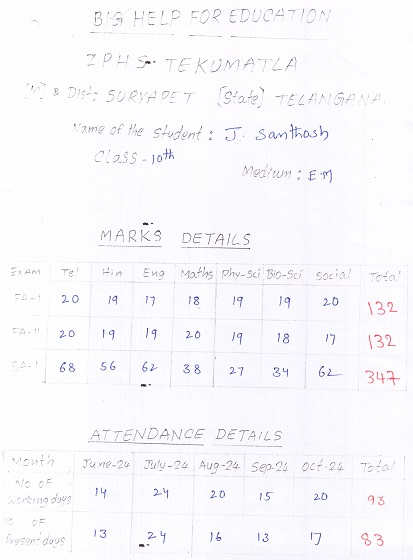 BIG HELP FOR EDUCATION
ZPHS - TEKUMATLA
[M] & Dist: SURYAPET [State] TELANGANA.
Name of the student : J. Santhosh
Class - 10th
Medium : EM
MARKS DETAILS
Exam Tel Hin Eng Maths Phy-Sci Bio-Sci Social Total
FA-I 20 19 17 18 19 19 20 132
FA-II 20 19 19 20 19 18 17 132
SA-I 68 56 62 38 27 34 62 347
ATTENDANCE DETAILS
Month June-24 July-24 Aug-24 Sep-24 Oct-24 Total
No OF
Working days 14 24 20 15 20 93
No OF
Present days 13 24 16 13 17 83